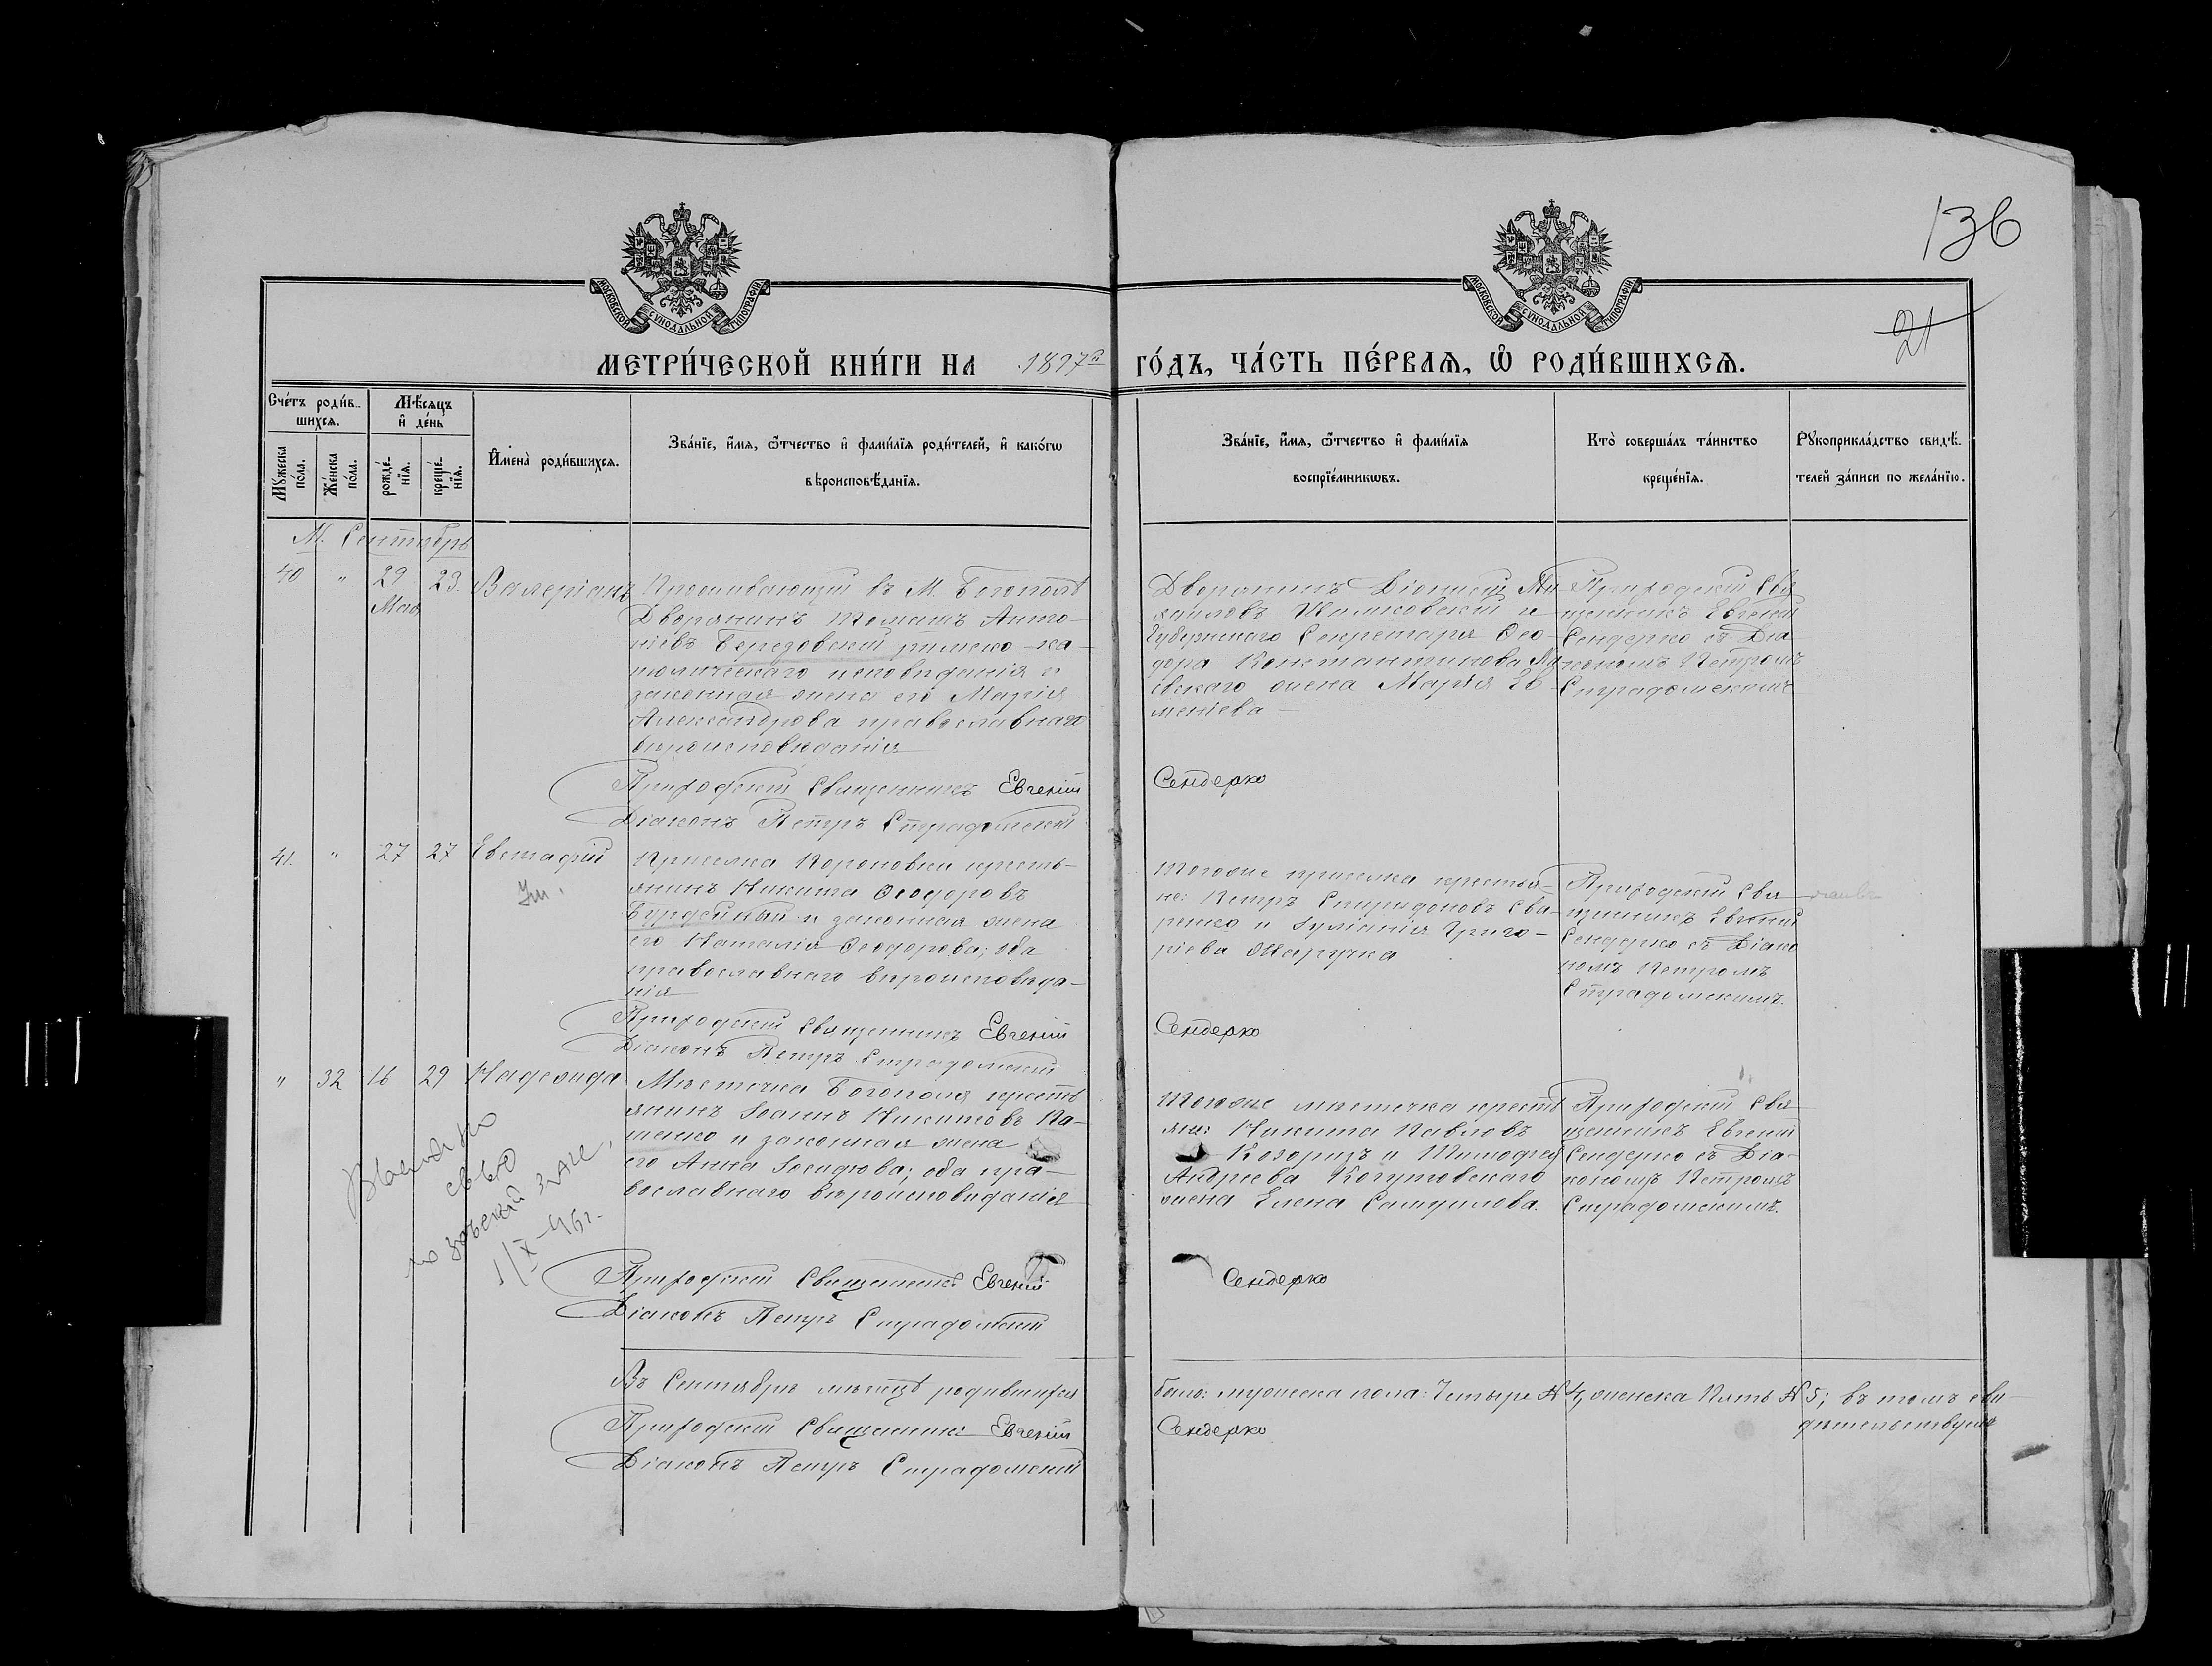 136
21
МОСКОВСКОЙ СѴНОДАЛЬНОЙ ТИПОГРАФІИ
МОСКОВСКОЙ СѴНОДАЛЬНОЙ ТИПОГРАФІИ
МЕТРИ́ЧЕСКОЙ КНИ́ГИ НА 1897й ГО́ДЪ, ЧА́СТЬ ПЕ́РВАѦ, Ѡ҆ РОДИ́ВШИХСѦ.
Сче́тъ роди́в-
шихсѧ.
Мꙋ́жеска по́ла.
Же́нска по́ла.
Мѣ́сѧцъ и҆ де́нь
рожде́-нїѧ.
креще́-нїѧ.
И҆мена̀ роди́вшихсѧ.
Зва́нїе, и҆́мѧ, ѻ҆́тчество и҆ фами́лїѧ роди́телей, и҆ како́гѡ
вѣроисповѣ́данїѧ.
Зва́нїе, и҆́мѧ, ѻ҆́тчество и҆ фами́лїѧ
воспрїе́мникѡвъ.
Кто̀ соверша́лъ та́инство
креще́нїѧ.
Рꙋкоприкла́дство свидѣ́-
телей за́писи по жела́нїю.
М. Сентябрь
40 " 29 Мая 23. Валеріанъ
Проживающій въ М. Богополѣ
Дворянинъ Томашъ Анто-
ніевъ Березовскій римско-ка-
толическаго исповѣданія и
законная жена его Марія
Александрова православнаго
вѣроисповѣданія
Дворянинъ Діонисій Ми
хайловъ и
Губернскаго Секретаря Ѳео-
дора Константинова
жена Марія Ев-
меніева
Приходскій Свя
щенникъ Евгеній
Сендерко съ Діа
кономъ Петромъ
Страдомскимъ
Приходскій Священникъ Евгеній Сендерко
Діаконъ Петръ Страдомскій
41. " 27 27 Евстафій
Ум.
Приселка Короновки кресть-
янинъ Никита Ѳеодоровъ
и законная жена
его Наталія Ѳеодорова; оба
православнаго вѣроисповѣда-
нія
Тогоже приселка крестья-
не: Петръ Спиридоновъ
и Іуліанія Григо-
ріева
Приходскій Свя
щенникъ Евгеній
Сендерко съ Діако
номъ Петромъ
Страдомскимъ.
Приходскій Священникъ Евгеній Сендерко
Діаконъ Петръ Страдомскій
" 32 16 29 Надежда
Мѣстечка Богополя кресть
янинъ Іоаннъ Никитовъ
и законная жена
его Анна оба пра-
вославнаго вѣроисповѣданія
Тогоже мѣстечка кресть
яне: Никита Павловъ
и Тимофея
Андреева Когутовскаго
жена Елена Самуилова.
Приходскій Свя
щенникъ Евгеній
Сендерко съ Діа-
кономъ Петромъ
Страдомскимъ.
1/X-46г.
Приходскій Священникъ Евгеній Сендерко
Діаконъ Петръ Страдомскій
Въ Сентябрѣ мѣсяцѣ родившихся было: мужеска пола: Четыре № 4, женска Пять № 5; въ томъ сви-
дѣтельствуемъ
Приходскій Священникъ Евгеній Сендерко
Діаконъ Петръ Страдомскій